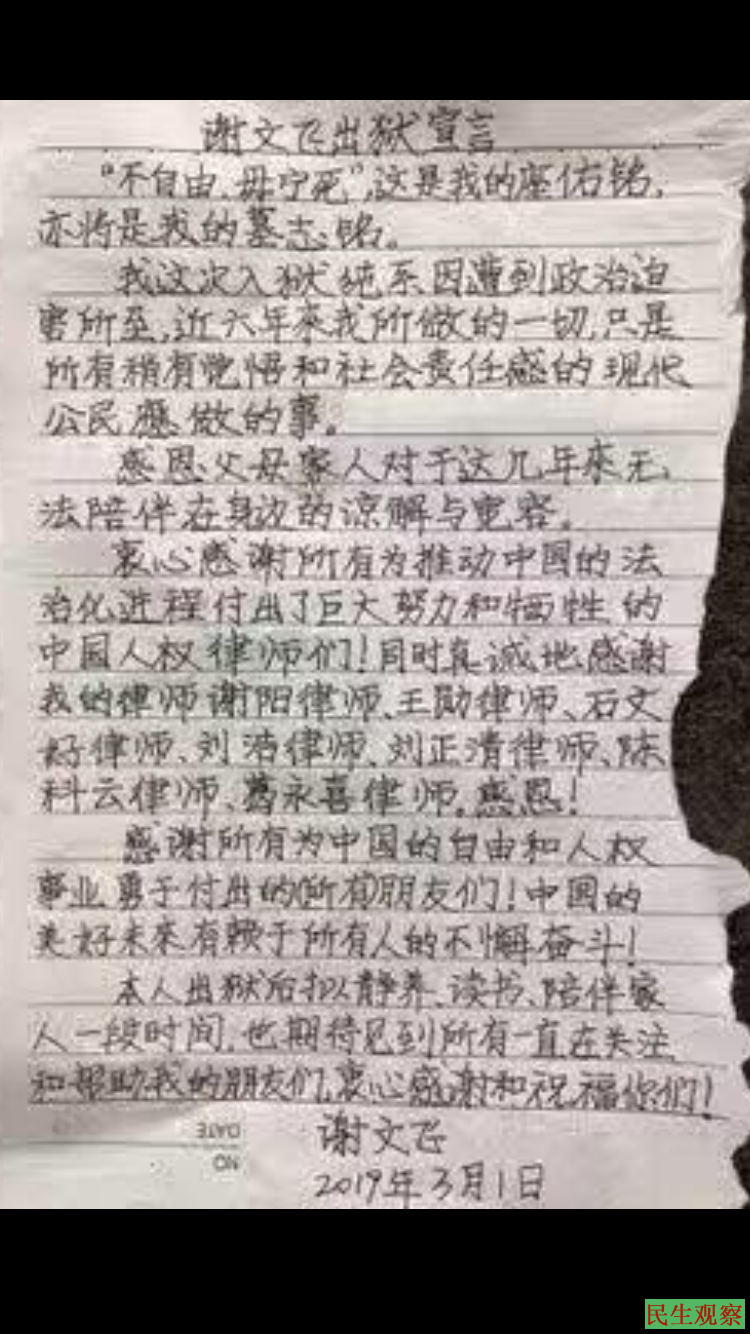 谢文飞出狱宣言
“不自由,毋宁死”,这是我的座佑铭,
亦将是我的墓志铭。
我这次入狱纯系因遭到政治迫
害所至,近六年来我所做的一切,只是
所有稍有觉悟和社会责任感的现代
公民应做的事。
感恩父母家人对于这几年来无
法陪伴在身边的谅解与宽容。
衷心感谢所有为推动中国的法
治化进程付出了巨大努力和牺牲的
中国人权律师们!同时真诚地感谢
我的律师谢阳律师、王勋律师、石文
好律师、刘浩律师、刘正清律师、陈
科云律师、葛永喜律师。感恩!
感谢所有为中国的自由和人权
事业勇于付出的(所有)朋友们!中国的
美好未来有赖于所有人的不懈奋斗!
本人出狱后拟静养、读书、陪伴家
人一段时间,也期待见到所有一直在关注
和帮助我的朋友们,衷心感谢和祝福你们!
谢文飞
2019年3月1日
DATE
NO
民生观察